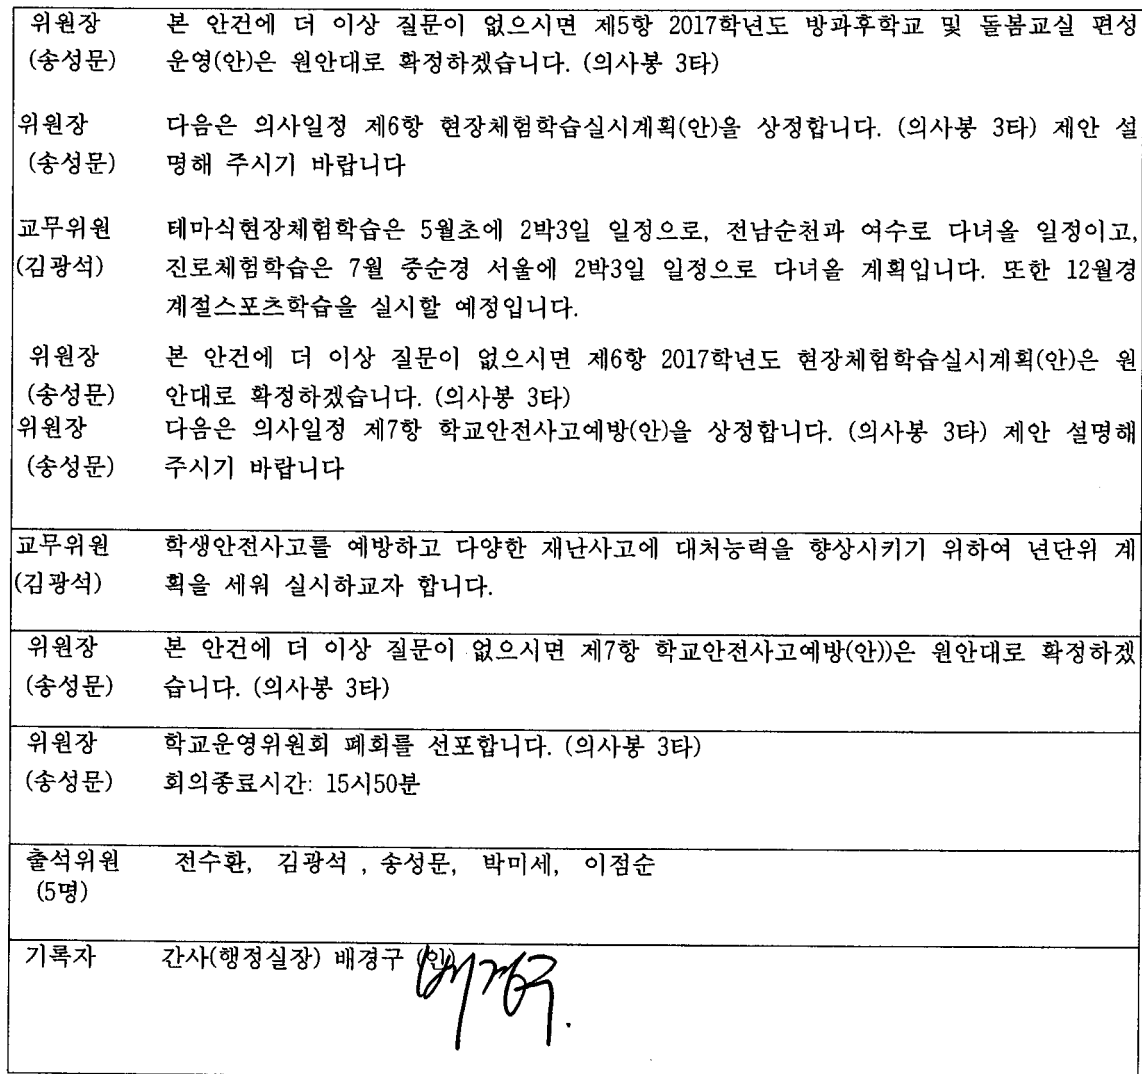 위원장 본 안건에 더 이상 질문이 없으시면 제5항 2017학년도 방과후학교 및 돌봄교실 편성
(송성문) 운영(안)은 원안대로 확정하겠습니다. (의사봉 3타)
위원장 다음은 의사일정 제6항 현장체험학습실시계획(안)을 상정합니다. (의사봉 3타) 제안 설
(송성문) 명해 주시기 바랍니다
교무위원 테마식현장체험학습은 5월초에 2박3일 일정으로, 전남순천과 여수로 다녀올 일정이고,
(김광석) 진로체험학습은 7월 중순경 서울에 2박3일 일정으로 다녀올 계획입니다. 또한 12월경
계절스포츠학습을 실시할 예정입니다.
위원장 본 안건에 더 이상 질문이 없으시면 제6항 2017학년도 현장체험학습실시계획(안)은 원
(송성문) 안대로 확정하겠습니다. (의사봉 3타)
위원장 다음은 의사일정 제7항 학교안전사고예방(안)을 상정합니다. (의사봉 3타) 제안 설명해
(송성문) 주시기 바랍니다
교무위원 학생안전사고를 예방하고 다양한 재난사고에 대처능력을 향상시키기 위하여 년단위 계
(김광석) 획을 세워 실시하교자 합니다.
위원장 본 안건에 더 이상 질문이 없으시면 제7항 학교안전사고예방(안))은 원안대로 확정하겠
(송성문) 습니다. (의사봉 3타)
위원장 학교운영위원회 폐회를 선포합니다. (의사봉 3타)
(송성문) 회의종료시간: 15시50분
출석위원 전수환, 김광석 , 송성문, 박미세, 이점순
(5명)
기록자 간사(행정실장) 배경구 (인)
배경구